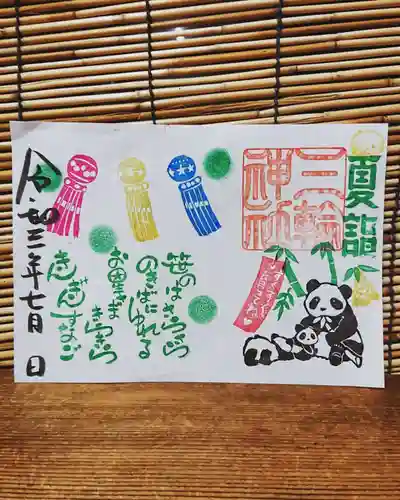 夏詣
三輪
神社
笹のはさらさら
のきばにゆれる
お星さまきらきら
きんぎんすなご
令和三年七月 日